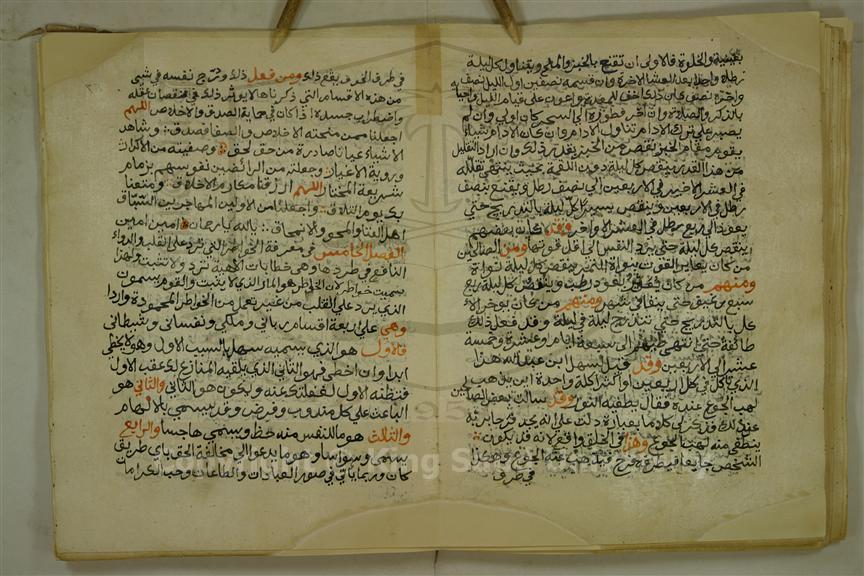 بقيمية والخلوة فالاولى ان تقنع بالخبز والملح ويتناول كل ليلة
رطلا واحدا بعد العشا الاخرة وان قسمه نصفين اول الليل نصف
واخره نصف يكن ذلك اخف للمعدة واعون على قيام الليل واحيا
بالذكر والصلاة وان اخر فطوره الى السحر كان اولى وان لم
يصبر على ترك الادام تناول الادام وان كان الادام شيئا
يقوم مقام الخبز ينقص من الخبز بقدر ذلك وان اراد التقليل
من هذا القدر ينقص كل ليلة دون اللقمة بحيث ينتهي تقلله
في العشر الاخير في الاربعين الى نصف رطل ويقنع بنصف
رطل في الاربعين وينقص يسيرا كل ليلة بالتدريج حتى
يعود الى ربع رطل في العشر الاواخر وقد كان بعضهم
ينقص كل ليلة حتى يرد النفس الى اقل قوتها ومن الصالحين
من كان يعاير القوت بنواة التمر وينقص كل ليلة نواة
ومنهم من كان يعود رطب وينقص كل ليلة ربع
سبع رغيف حتى يفنا في شهر ومنهم من كان يوخر الاكل
كل بالتدريج حتى تندرج ليلة في ليلة وقد فعل ذلك
طائفة حتى انتهى الى سبعة ايام وعشرة وخمسة
عشر الى الاربعين وقد قيل لسهل ابن عبد الله هذا
الذي ياكل في كل اربعين او اكثر اكلة واحدة اين يذهب
لهب الجوع عنه فقال يطفيه النور وقد سالت بعض الصالحين
عن ذلك فذكر لي كلاما بعبارة دلت على انه يجد فرحا بربه
ينطفي منه لهب الجوع وهذا في الخلق واقع لانه قد يكون
الشخص جايعا فيطرقه فرح فيذهب عنه الجوع وهكذا
في طرف
في طرف الخوف يقع ذلك ومن فعل ذلك ودرج نفسه في شي
من هذه الاقسام التي ذكرناها لا يوثر ذلك في نقصان عقله
واضطراب جسده اذا كان في حماية الصدق والاخلاص اللهم
اجعلنا ممن منحته الاخلاص والصفا فصدق وشاهد
الاشياء عيانا صادرة من حق لحق وصفيته من الاكدار
وروية الاغيار وجعلته من الرائضين نفوسهم بزمام
شريعة المختار اللهم ارزقنا مكارم الاخلاق ومتعنا
بك يوم التلاق واجعلنا من الاولين المهاجرين السباق
اهل الفنا والمحو والانمحاق يا الله يا رحمان امين امين
الفصل الخامس في معرفة الخواطر التي ترد على القلب والدواء
النافع في طردها وهي خطابات الاهية ترد ولا تثبت ولهذا
سميت خواطر لان الخاطر هو المار الذي لا يثبت والقوم يسمون
الذي يرد على القلب من غير تعمل من الخواطر المحمودة واردا
وهي على اربعة اقسام رباني وملكي ونفساني وشيطاني
فالاول هو الذي يسميه سهل بالسبب الاول وهو لا يخطي
ابدا وان اخطى فهو الثاني الذي يلقيه المنازع لك عقب الاول
فتظنه الاول لغفلتك عنه ويكون هو الثاني والثاني هو
الباعث على كل مندوب وفرض وقد يسمى بالالهام
والثالث هو ما للنفس منه حظ ويسمي هاجسا والرابع
يسمى وسواسا وهو ما يدعوا الى مخالفة الحق باي طريق
كان وربما ياتي في صور العبادات والطاعات وحب الكرامات